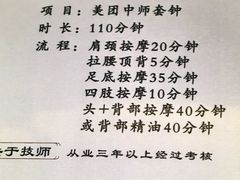 项目：美团中师套钟
时长：110分钟
流程：肩颈按摩20分钟
拉腰顶背5分钟
足底按摩35分钟
四肢按摩10分钟
头+背部按摩40分钟
或背部精油40分钟
于技师 从业三年以上经过考核